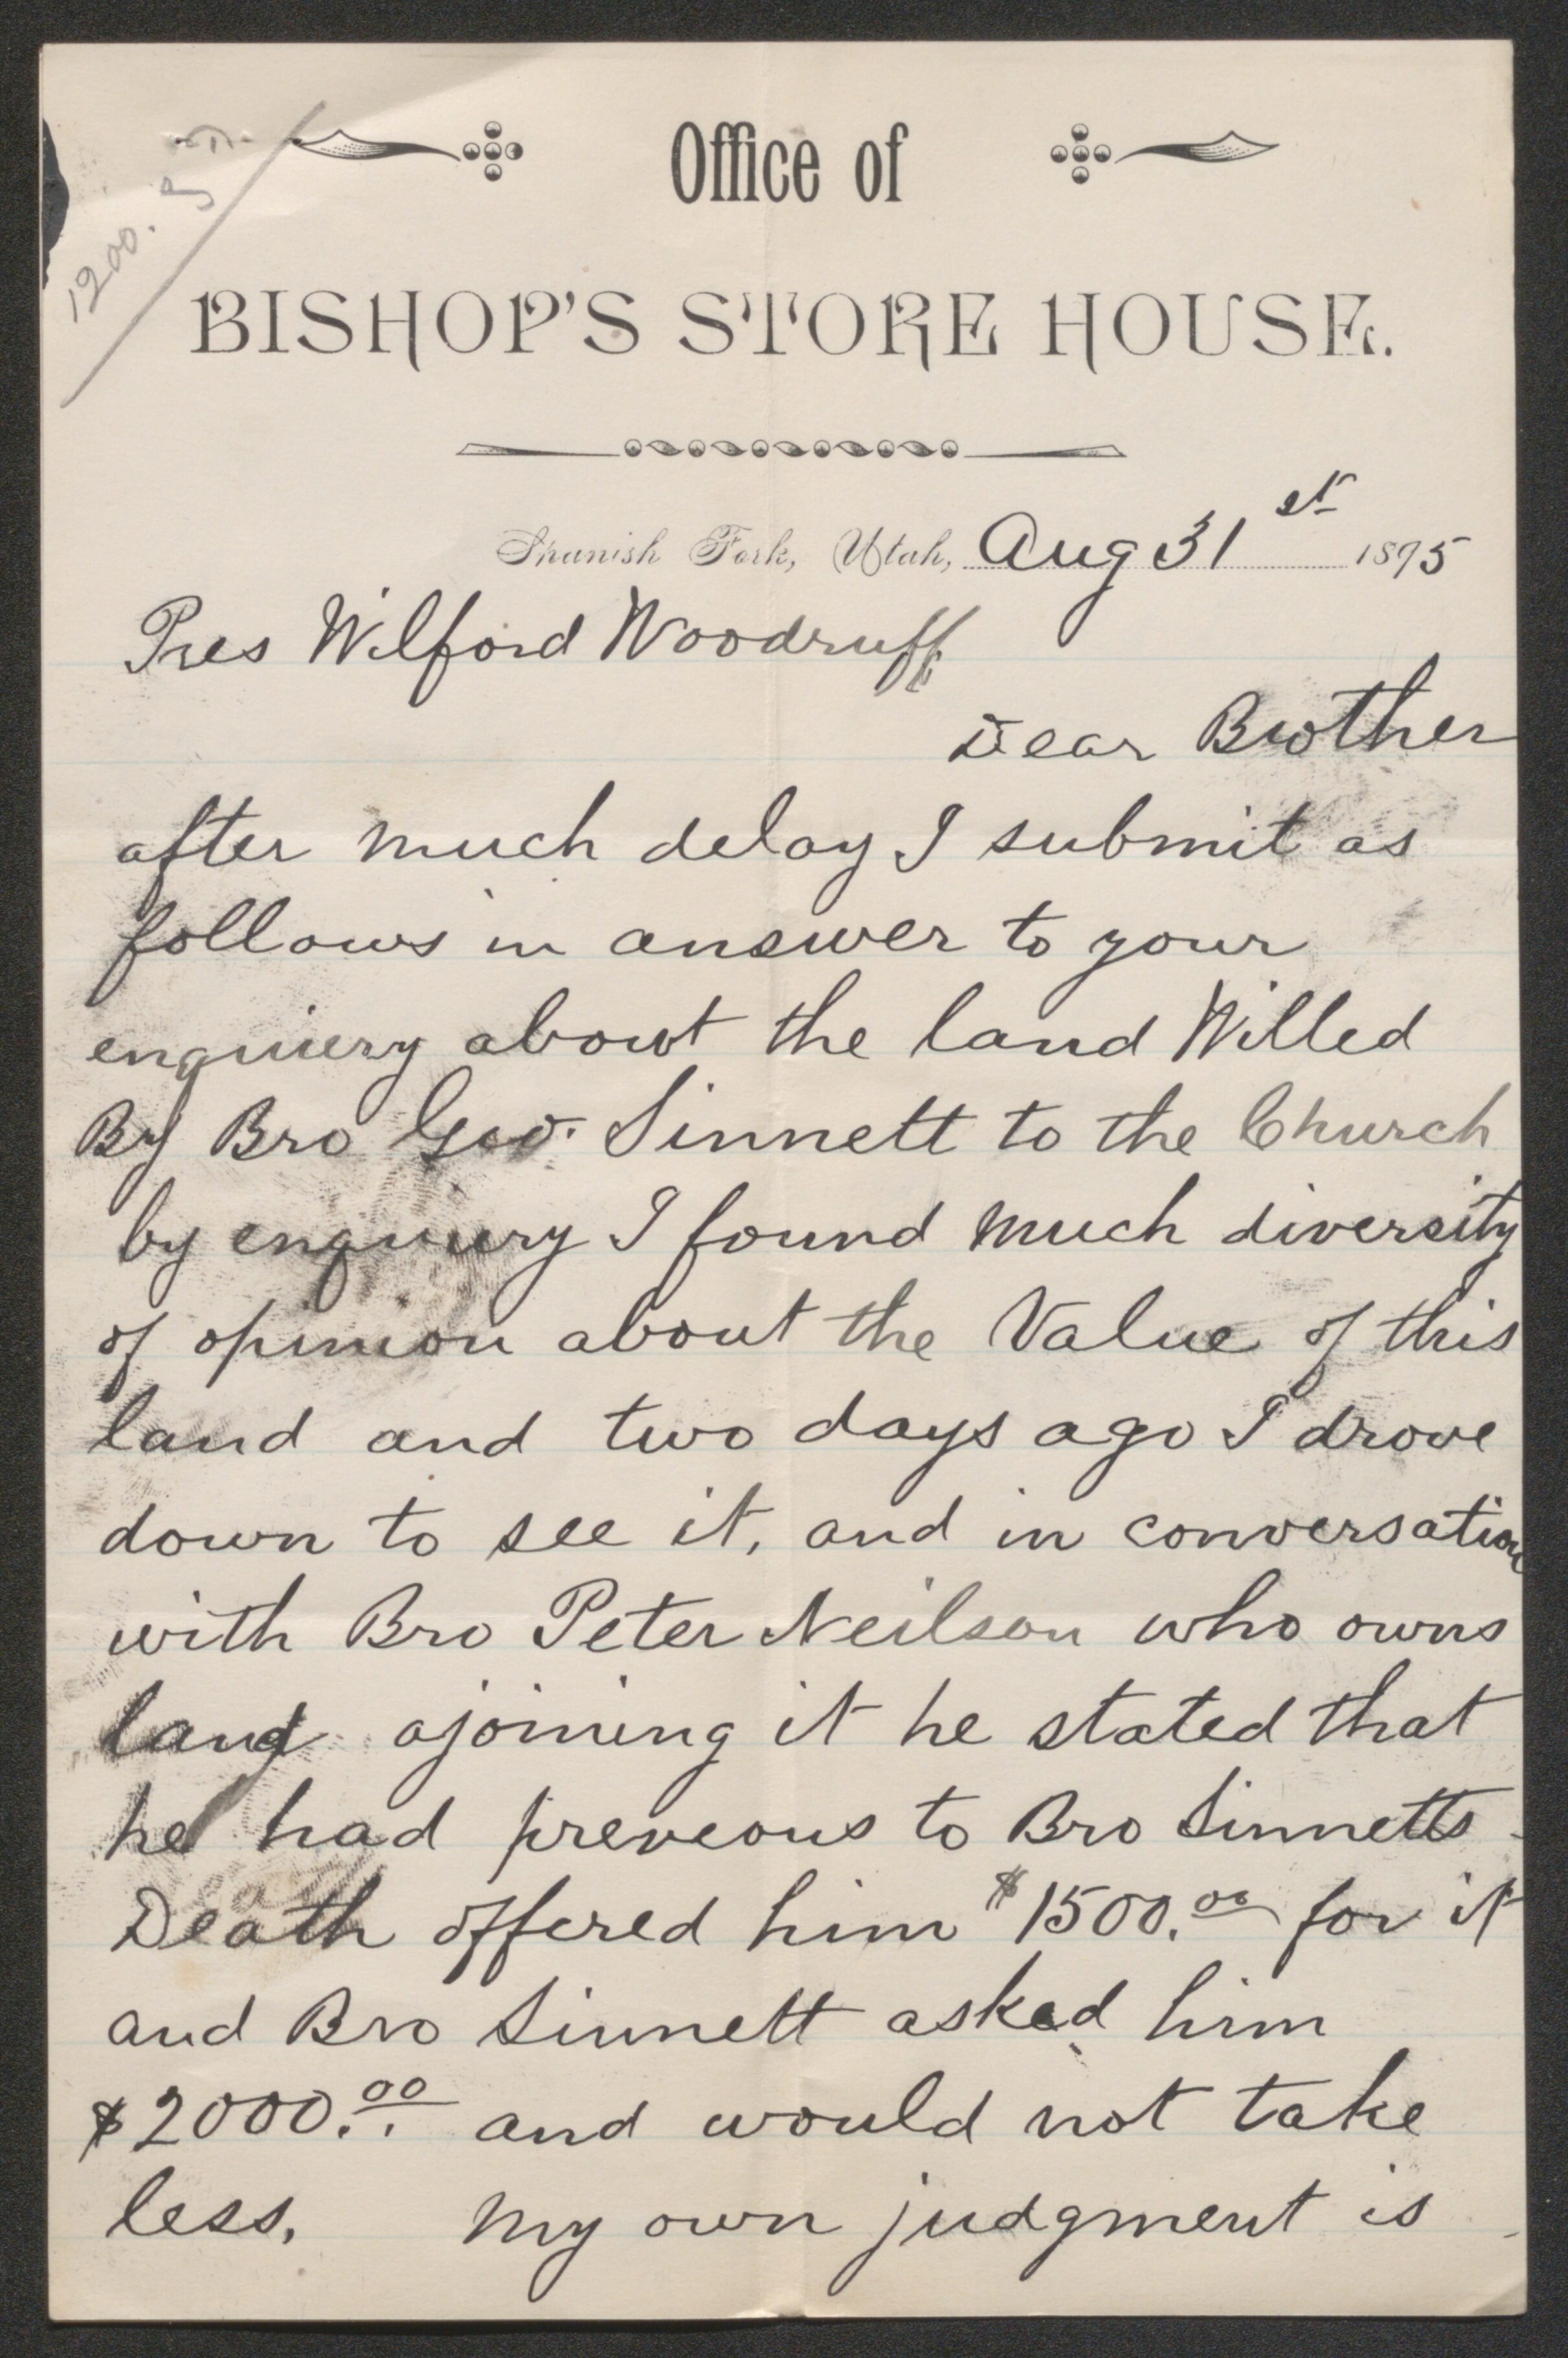 1200.
Office of
BISHOP'S STORE HOUSE.
Spanish Fork, Utah, Aug 31st 1895
Pres Wilford Woodruff
Dear Brother
after much delay I submit as
follows in answer to your
enquiery about the land Willed
By Bro Geo. Sinnett to the Church
by enquiery I found much diversity
of opinion about the Value of this
land and two days ago I drove
down to see it, and in conversation
with Bro Peter Neilson who owns
land ajoining it he stated that
he had preveous to Bro Sinnetts
Death offered him $1500.00 for it
and Bro Sinnett asked him
$2000.00 and would not take
less. My own judgment is